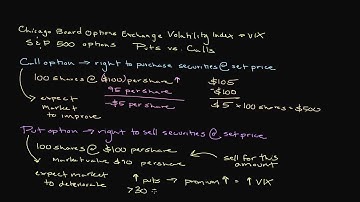 Chicago Board Options Exchange Volatility Index → VIX
S&P 500 options Puts vs. Calls
Call option → right to purchase securities @ set price
100 shares @ $100 per share ↑ $105
95 per share -$100
-$5 per share $5 × 100 shares = $500
→ expect market to improve
Put option → right to sell securities @ set price
100 shares @ $100 per share
Market value $90 per share ← sell for this amount
expect market to deteriorate
↑ puts → premium ↑ = ↑ VIX
>30